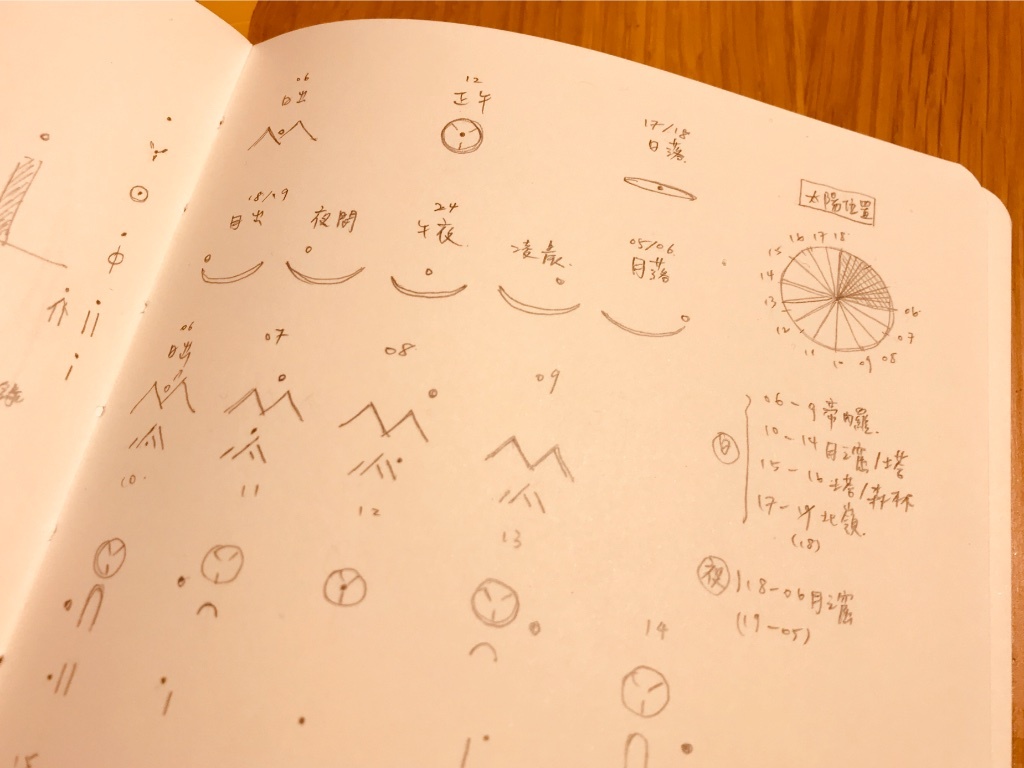 06
日出
12
正午
17/18
日落
太陽位置
18/19
月出
夜間
24
午夜
凌晨
05/06
月落
15 16 17 18
14
13
12
11
10
09
08
07
06
06
日出
07
08
09
10
11
12
13
14
15
日
06-9 帝內羅
10-14 日之窟/塔
15-16 塔/森林
17- 北嶺
(18)
夜
18-06 月之窟
(19-05)